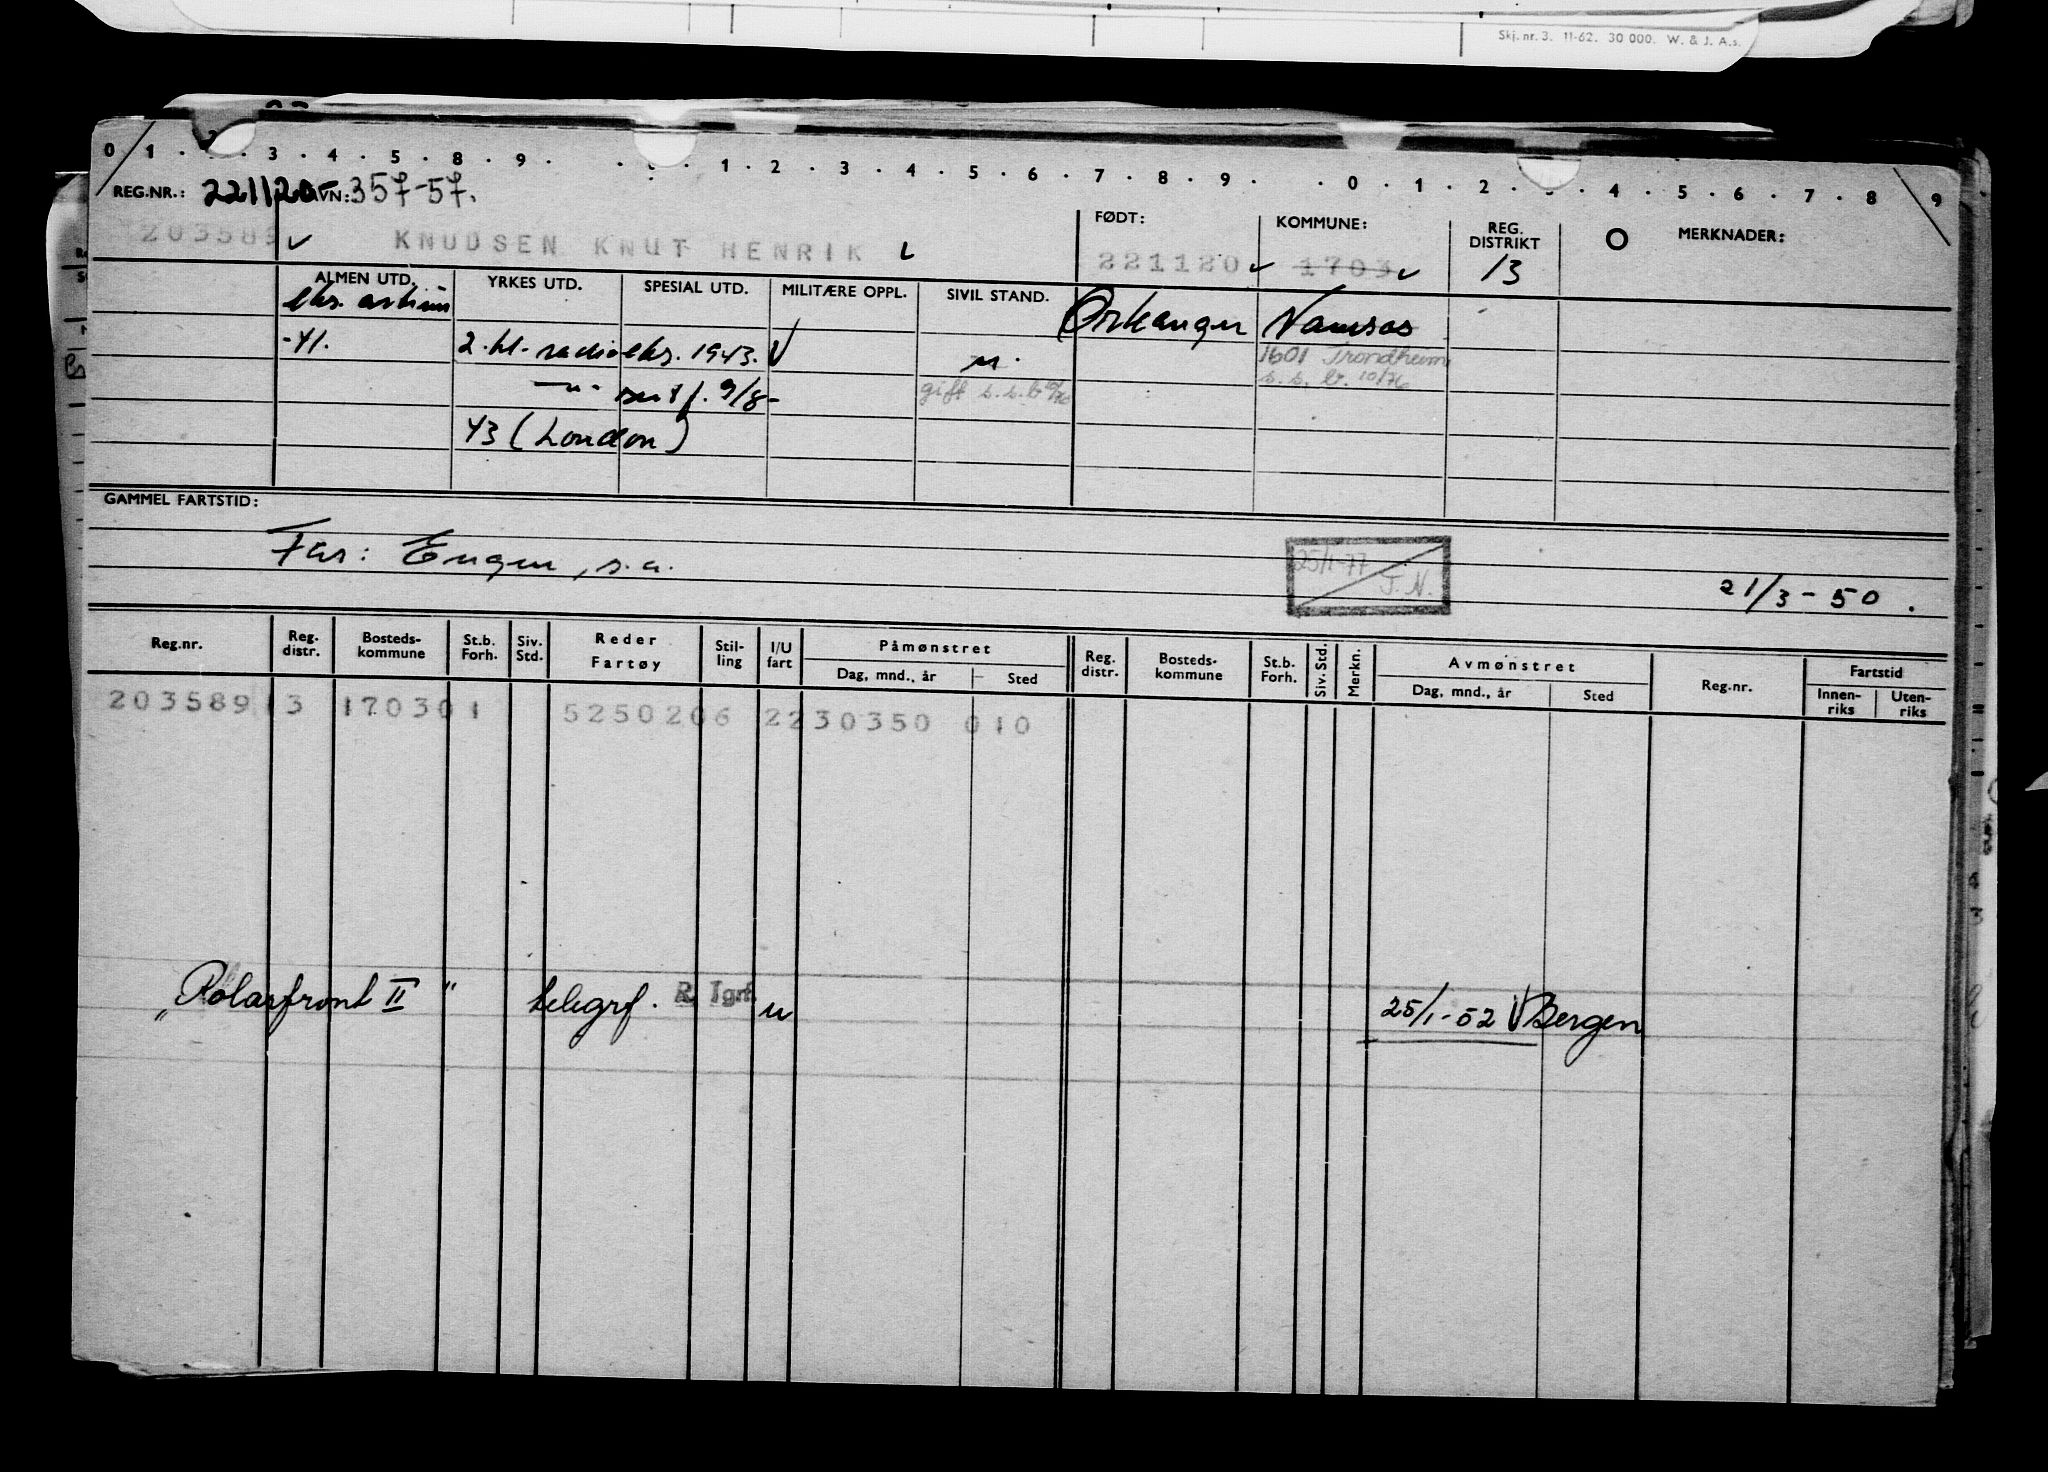 Skj. nr. 3. 11-62. 30 000. W. & J. A.s.
0 1 . . . 3 . 4 . 5 . 8 . 9 . . . 1 . 2 . 3 . 4 . 5 . 6 . 7 . 8 . 9 . . 0 . 1 . 2 . . 4 . 5 . 6 . 7 . 8 9
REG.NR.: 221120 AVN: 357-57.
203589 KNUDSEN KNUT HENRIK
FØDT: KOMMUNE: REG. DISTRIKT O MERKNADER:
221120 1703 13
ALMEN UTD. YRKES UTD. SPESIAL UTD. MILITÆRE OPPL. SIVIL STAND.
eks. artium Orkanger Namsos
-41. 2. kl. radioeks. 1943. u. 1601 Trondheim
—"- sert f. 9/8- gift s.s.b 10/76 s. s. b. 10/76
43 (London)
GAMMEL FARTSTID:
Far: Eugen, s.a.
25/1-77 J.N.
21/3-50.
Reg.nr. Reg. distr. Bosteds- kommune St.b. Forh. Siv. Std. Reder Fartøy Stil- ling I/U fart Påmønstret Dag, mnd., år Sted Reg. distr. Bosteds- kommune St.b. Forh. Siv. Std. Merkn. Avmønstret Dag, mnd., år Sted Reg.nr. Fartstid Innen- riks Uten- riks
203589 13 1703 01 5250206 2230350 010
"Polarfront II" telegrf. R. Tgrf. u 25/1-52 Bergen